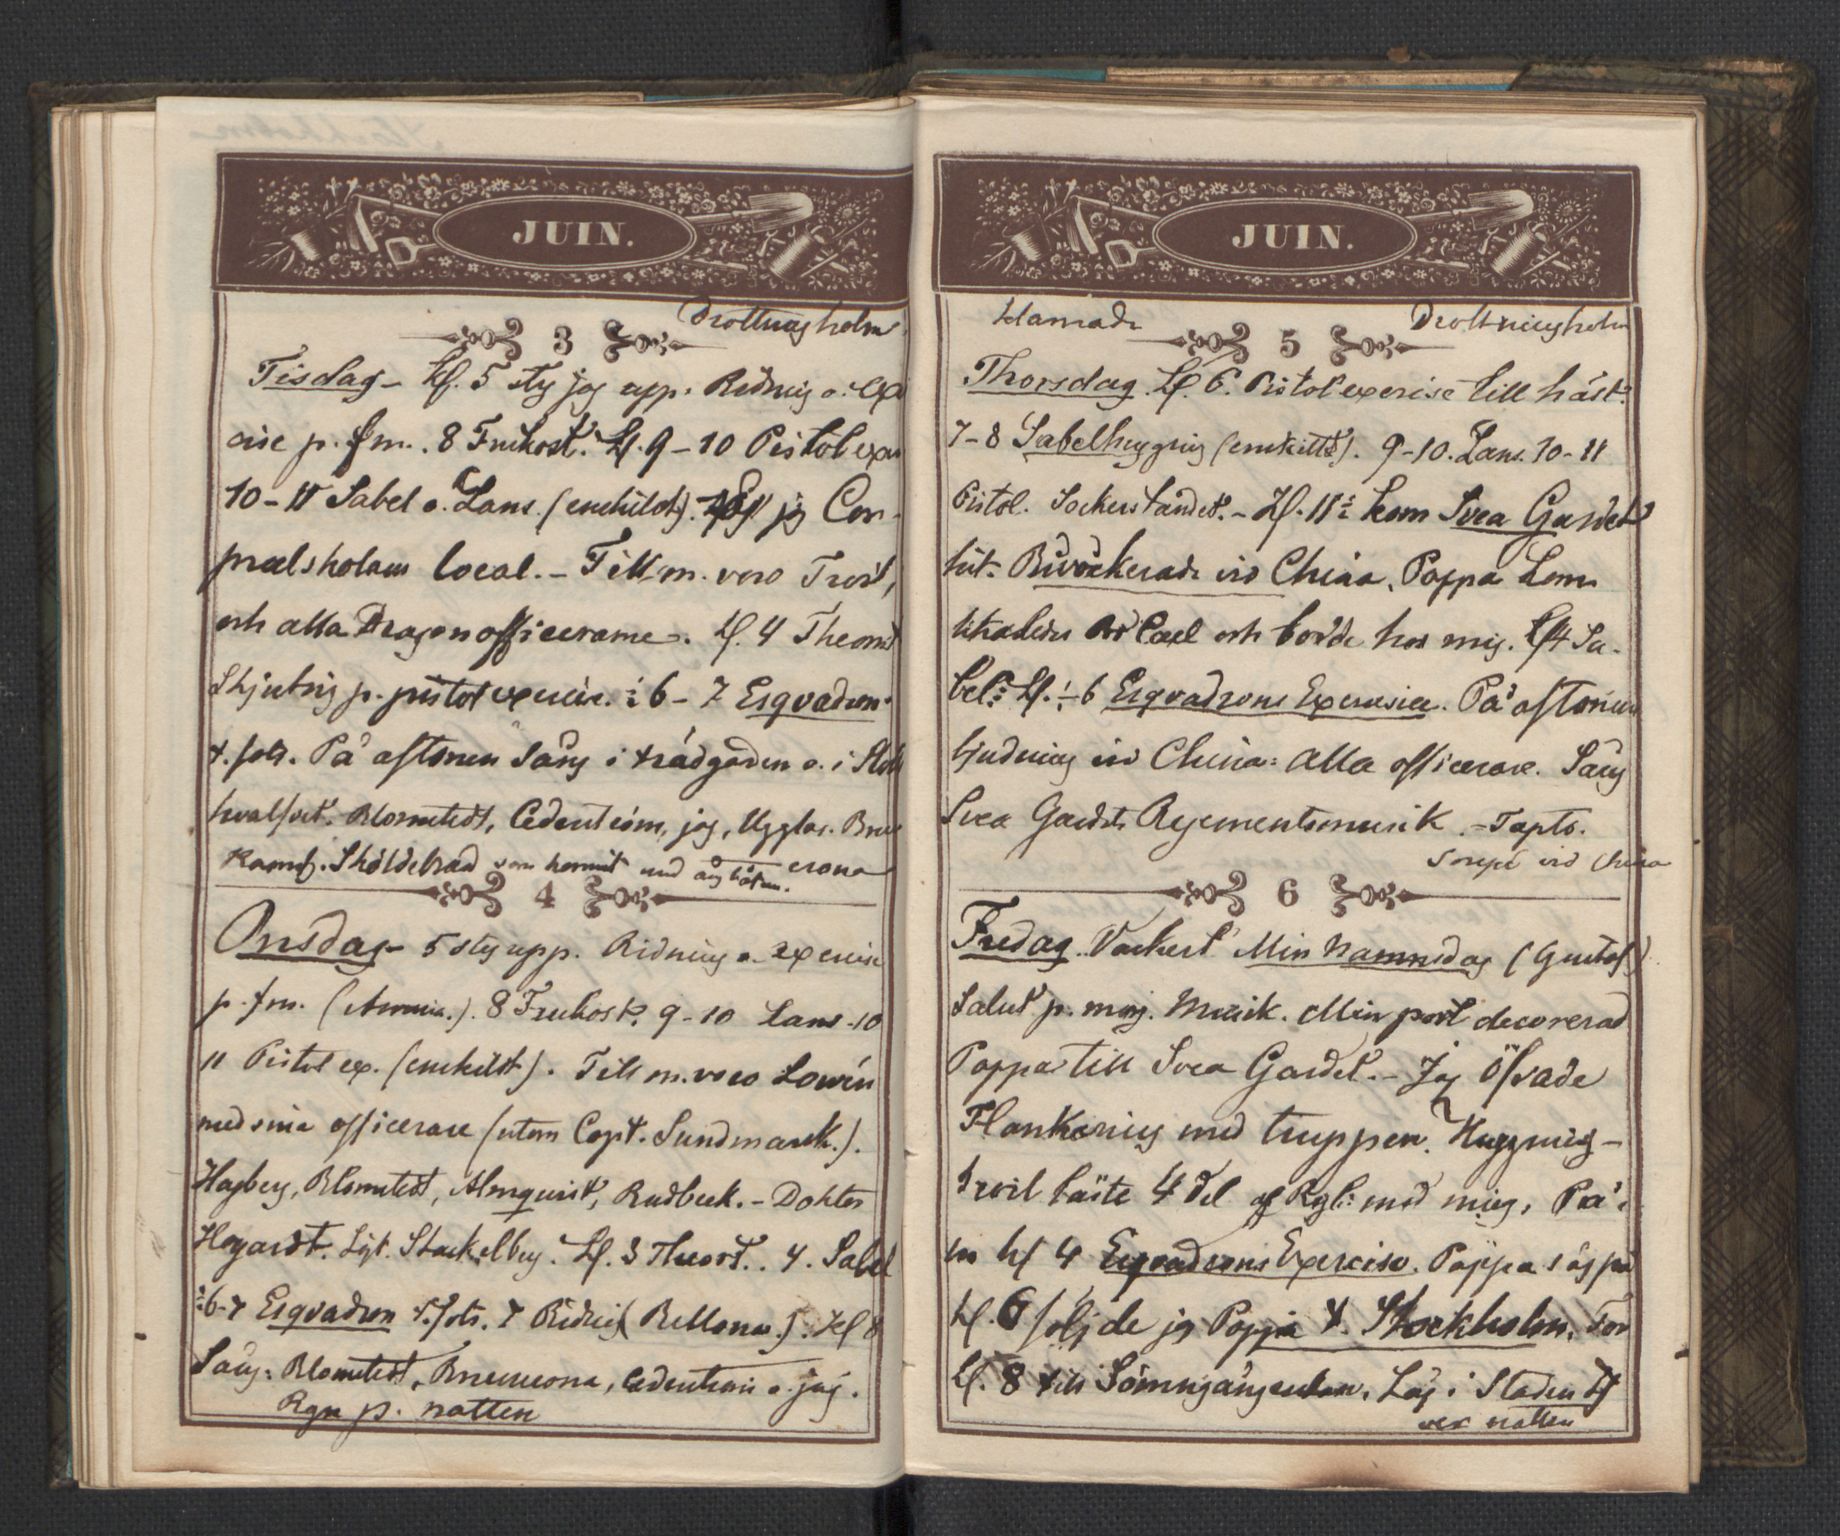 JUIN.
Drottningholm
3
Tisdag – kl. 5 steg jag upp. Ridning o. Ex
cise p. fm. 8 Frukost. kl. 9 – 10 Pistolexer
10 – 11 Sabel o. Lans. (enskildt). jag Cor-
pralskolans local. – Till m. voro Troil,
och alla Dragonofficerarne. kl. 4 Theoret
Skjutnig p. pistolexercise. ½ 6 – 7 Esqvadron.
t. fots. På aftonen Sång i trädgården o. i
hvalfvet. Blomstedt, Cederström, jag, Ugglas. Brune
Kamf. Sköldebrad som kommit med ångbåten. crona
4
Onsdag – 5 steg upp. Ridning o. exercise
p. fm. 8 Frukost. 9 – 10 Lans – 10
11 Pistol ex. (enskildt). Till m. voro Lowén
med sina officerare (utom Capt. Sundmark.).
Hagberg, Blomstedt, Almquist, Rudbeck. – Doktor
Hogardt. Löjt. Stackelberg. kl. 3 Theort. 4. Sabel
½6-7 Esqvadron t. fots. 7 Ridn. (Bellona.). kl 8
Sång: Blomstedt, Brunecrona, Cederström o. jag.
Regn p. natten
JUIN.
Drottningholm
5
Thorsdag. kl. 6. Pistolexercise till häst.
7 – 8 Sabelhuggnig (enskildt). 9 – 10. Lans. 10 – 11
Pistol. Sockerståndet. – kl. 11½ kom Svea Gardet
hit. Bivackerade vid China. Pappa kom
hitaleder Carl och bodde hos mig. kl 4 Sa-
bel. kl. ½ 6 Esqvadrons Exercice. På aftonen
bjudning vid China: alla officerare. Sång
Svea Gardets Regementsmusik. – Tapto.
Soupé vid China
6
Fredag. Vackert. Min Namnsdag (Gustaf)
Salut p. morg. Musik. Min port decorerad
Pappa till Svea Gardet. – Jag öfvade
Flankering med truppen. Huggning –
Troil läste 4 del af Regl: med mig. På e
m kl 4 Esqvadrons Exercise. Pappa såg på
kl. 6 följde jag Pappa t. Stockholm. For
kl. 8 till Sömngångerskan. Låg i Staden
över natten